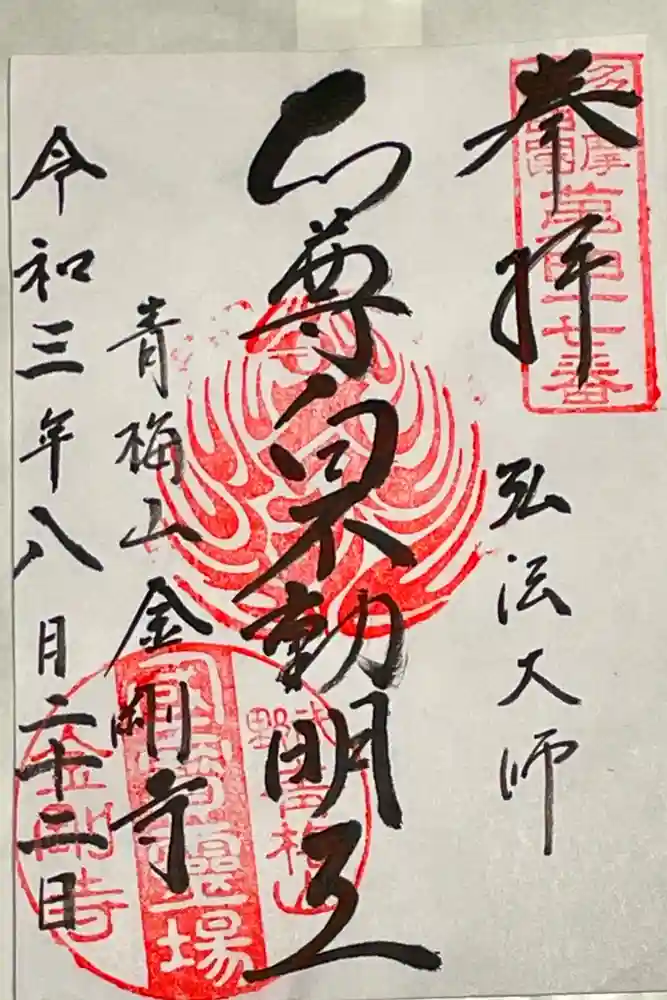 奉拝
弘法大師
本尊白不動明王
青梅山金剛寺
令和三年八月二十二日
多摩
四十七番
青梅山
霊場
金剛寺